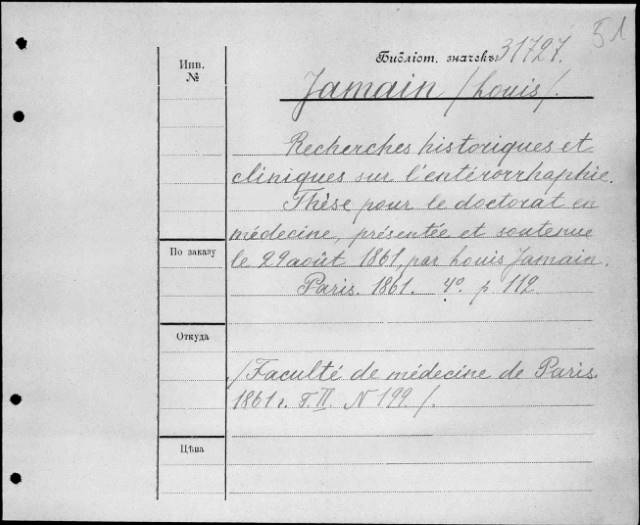 51
Библіот. значекъ 31727.
Инв.
№
Jamain /Louis/.
Recherches historiques et
cliniques sur l'entérorrhaphie.
Thèse pour le doctorat en
médecine, présentée et soutenue
le 29 août 1861, par Louis Jamain.
По заказу
Paris. 1861. 4º. p 112
Откуда
/Faculté de médecine de Paris.
1861 г. T. II. N 199./.
Цѣна